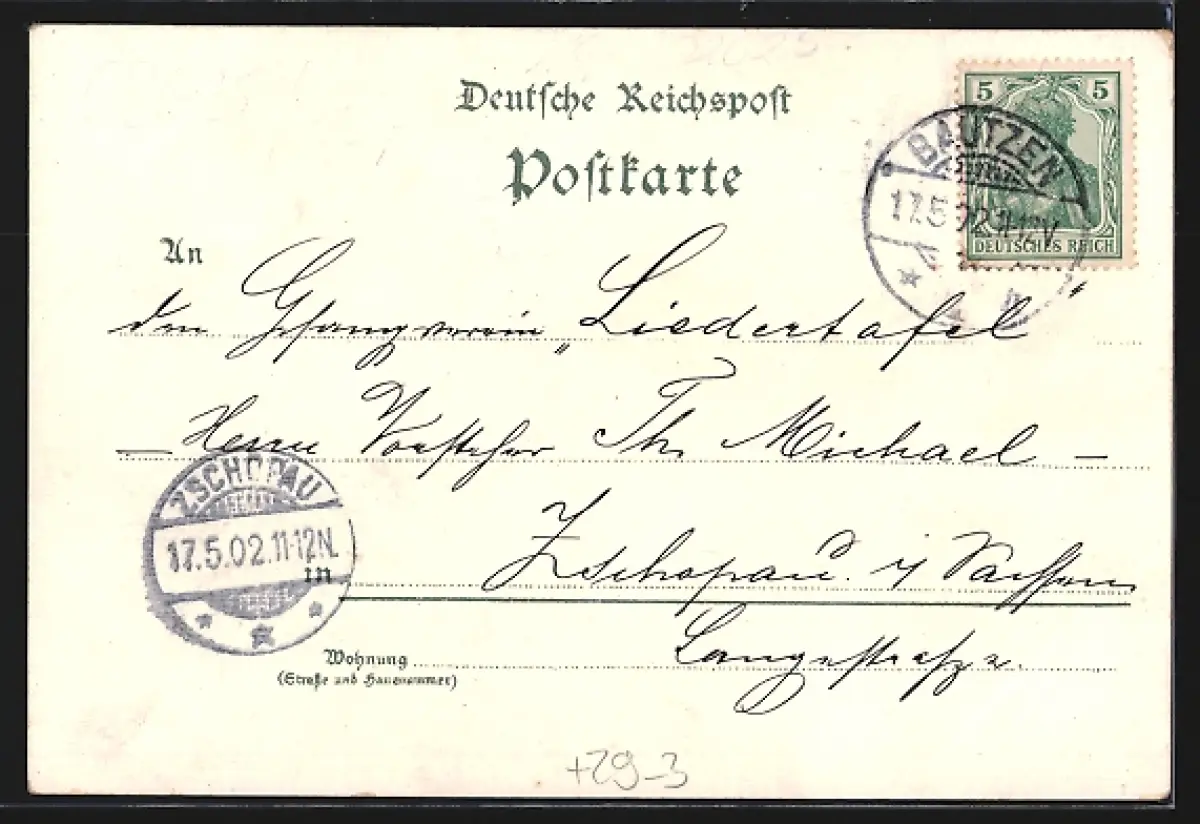 Deutsche Reichspost
Postkarte
5 5
DEUTSCHES REICH
BAUTZEN
17.5.02.11-12V.
An
den Gesangverein „Liedertafel“
– Herrn Vorsteher Th. Michael –
ZSCHOPAU
17.5.02.11-12N.
in
Zschopau i/ Sachsen
Langestraße
Wohnung
(Straße und Hausnummer)
+29-3